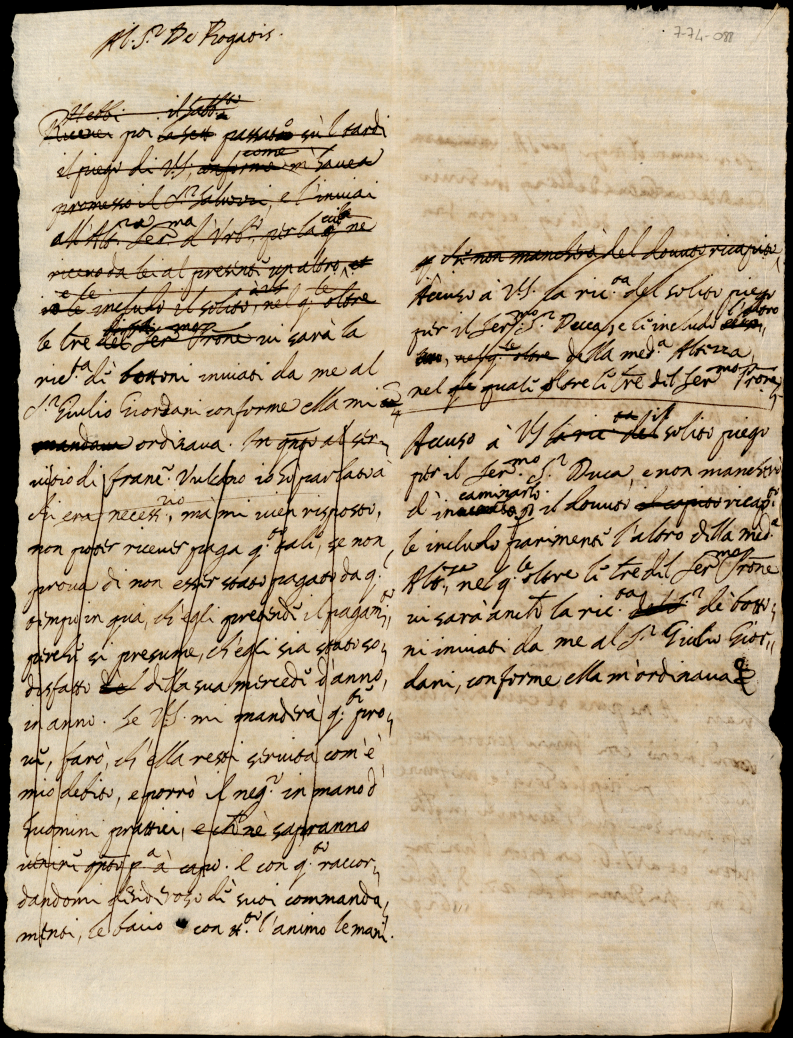 Al S.r De Rogatis.
7-74-088
Hebbi il Sabb.to
Ricevei poi la sett passata sù 'l tardi
il piego di VS, conforme come m'havea
promesso il S.r Salvetti, e l'inviai
all'Alt.za Ser.ma d'Urb.o, per la q.le ne
ricevo da lei al presente un altro, et
le includo il solito, nel q.le oltre
le tre del Ser.mo Prone vi sarà la
ric.ta di bottoni inviati da me al
S.r Giulio Giordani conforme ella mi
mandava ordinava. In q.nto al ser-
vitio di Franc.o Vulcano io hò parlato à
chi era necess.rio, ma mi vien risposto,
non poter ricever paga q.sti tali, se non
prova di non esser stato pagato da q.l
tempo in qua, ch'egli pretende il pagam.to,
perche si presume, ch'egli sia stato so-
disfatto del della sua mercede d'anno,
in anno. Se V.S. mi manderà q.ste pro-
ve, farò, ch'ella resti servita com'è
mio debito, e porrò il neg.o in mano d'
huomini prattici, e che ne sapranno
venire q.nto p.a à capo. e con q.sto raccor-
dandomi desideroso de suoi commanda-
menti, le bacio con tt.o l'animo le mani.
che non mancherà del dovuto ricapito
Accuso à VS. la ric.ta del solito piego
per il Ser.mo S.r Ducca, e le includo l'altro
nel q.le oltre della med.a Altezza,
nel quale oltre le tre del Ser.mo Prone
Accuso à VS la ric.ta del il solito piego
per il Ser.mo S.r Duca, e non mancherò
d'incaminarlo il dovuto ricap.to
le includo parimente l'altro della med.a
Alt.za, nel q.le oltre le tre del Ser.mo Prone
vi sarà anche la ric.ta de botto-
ni inviati da me al S.r Giulio Gior-
dani, conforme ella m'ordinava